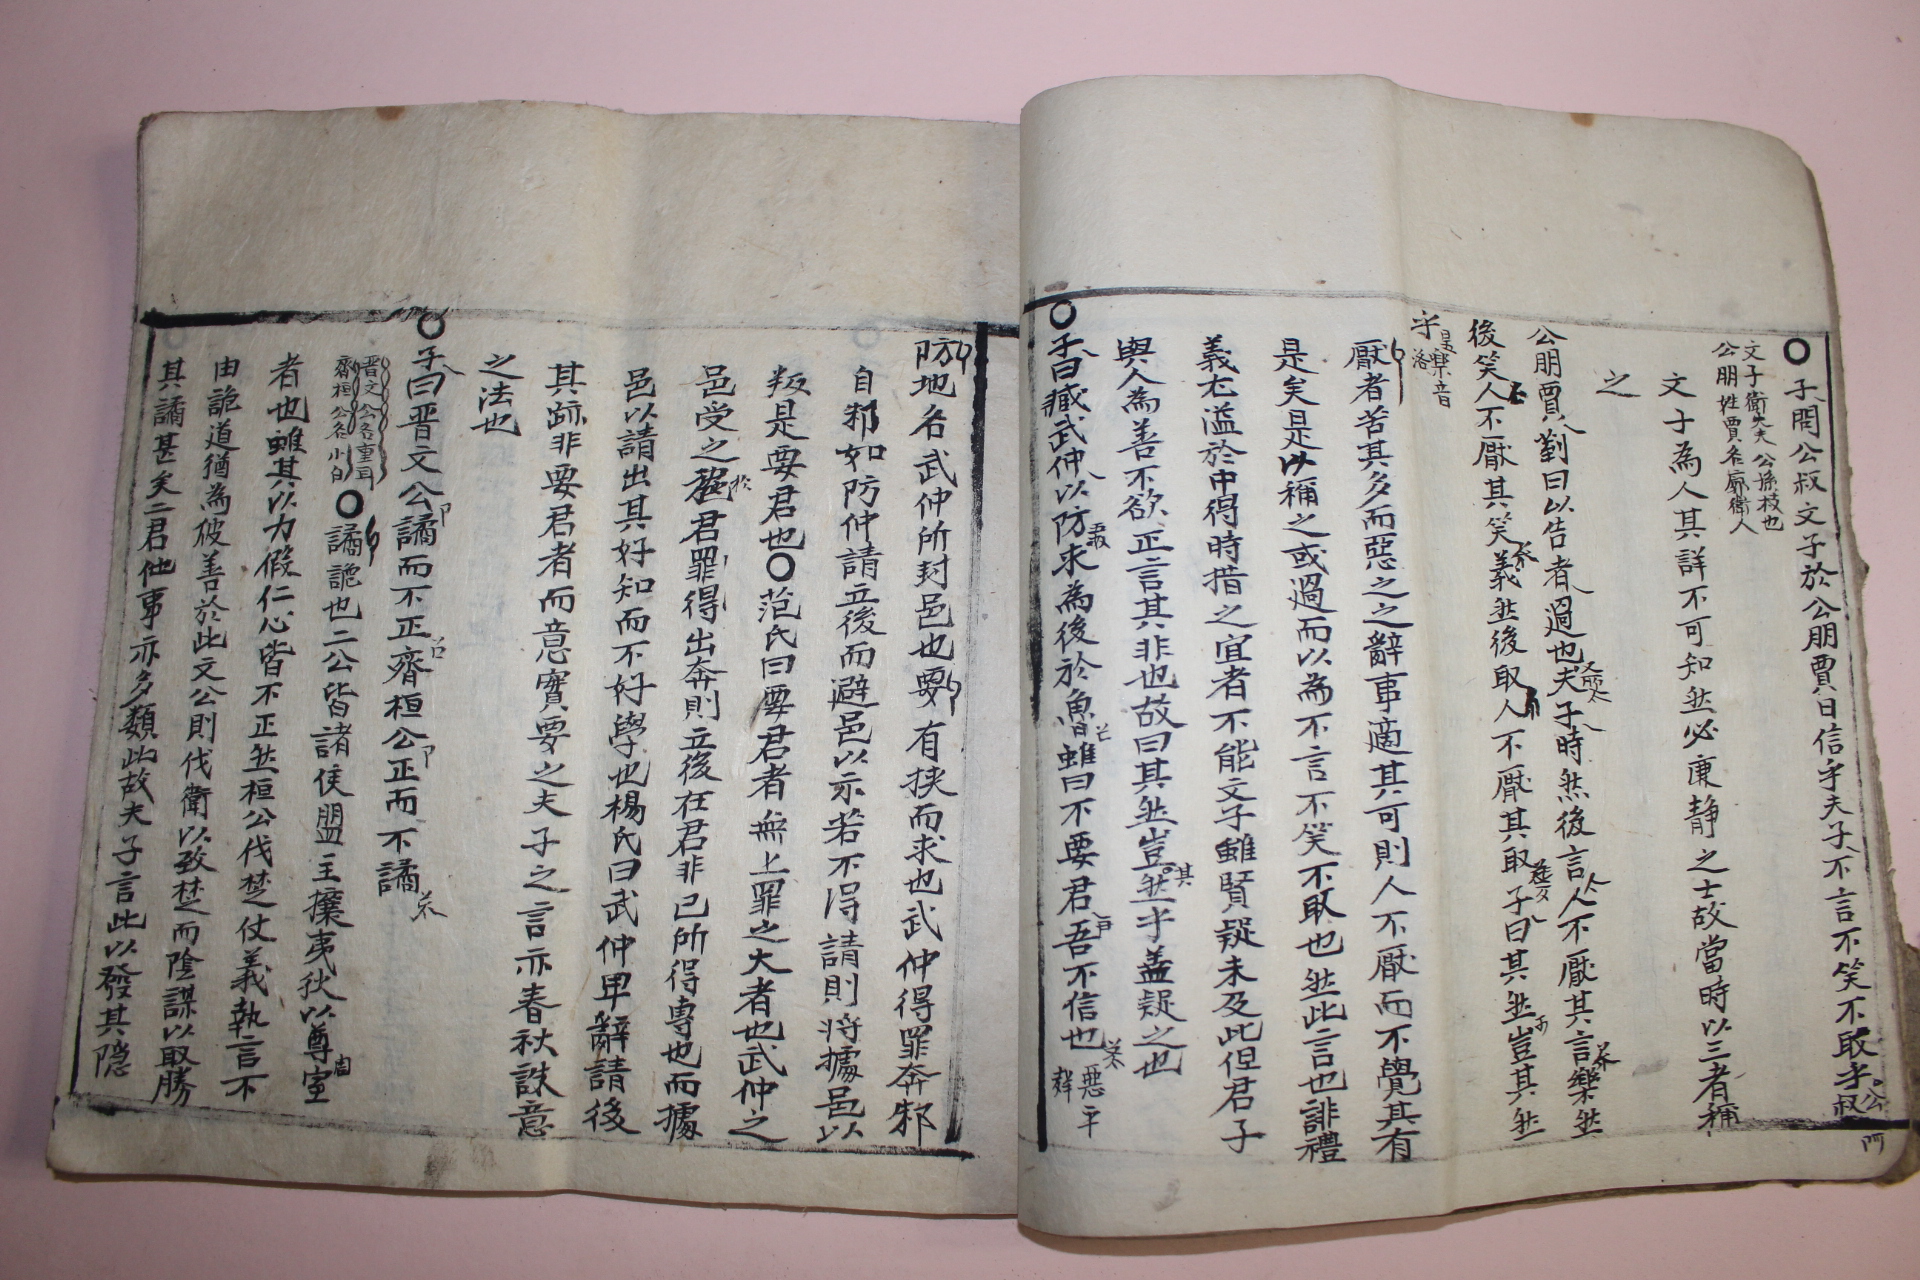 ○子問公叔文子於公明賈曰信乎夫子不言不笑不取乎
公叔
文子衛大夫公孫枝也
公明姓賈名衛人
文子為人其詳不可知然必廉静之士故當時以三者稱
之
公明賈對曰以告者過也夫子時然後言人不厭其言樂然
後笑人不厭其笑義然後取人不厭其取子曰其然豈其然
乎
樂音
洛
厭者苦其多而惡之之辭事適其可則人不厭而不覺其有
是矣是以稱之或過而以為不言不笑不取也然此言也非禮
義充溢於中得時措之宜者不能文子雖賢疑未及此但君子
與人為善不欲正言其非也故曰其然豈其然乎盖疑之也
○子曰臧武仲以防求為後於魯雖曰不要君吾不信也
要平
聲
防地名武仲所封邑也要有挟而求也武仲得罪奔邾
自邾如防仲請立後而避邑以示若不得請則將據邑以
叛是要君也○范氏曰要君者無上罪之大者也武仲之
邑受之於君罪得出奔則立後在君非己所得專也而據
邑以請出其好知而不好學也楊氏曰武仲卑辭請後
其跡非要君者而意實要之夫子之言亦春秋誅意
之法也
○子曰晋文公譎而不正齊桓公正而不譎
晋文公名重耳
齊桓公名小白
○譎詭也二公皆諸侯盟主攘夷狄以尊周室
者也雖其以力假仁心皆不正然桓公伐楚仗義執言不
由詭道猶為彼善於此文公則伐衛以致楚而陰謀以取勝
其譎甚矣二君他事亦多類此故夫子言此以發其隱